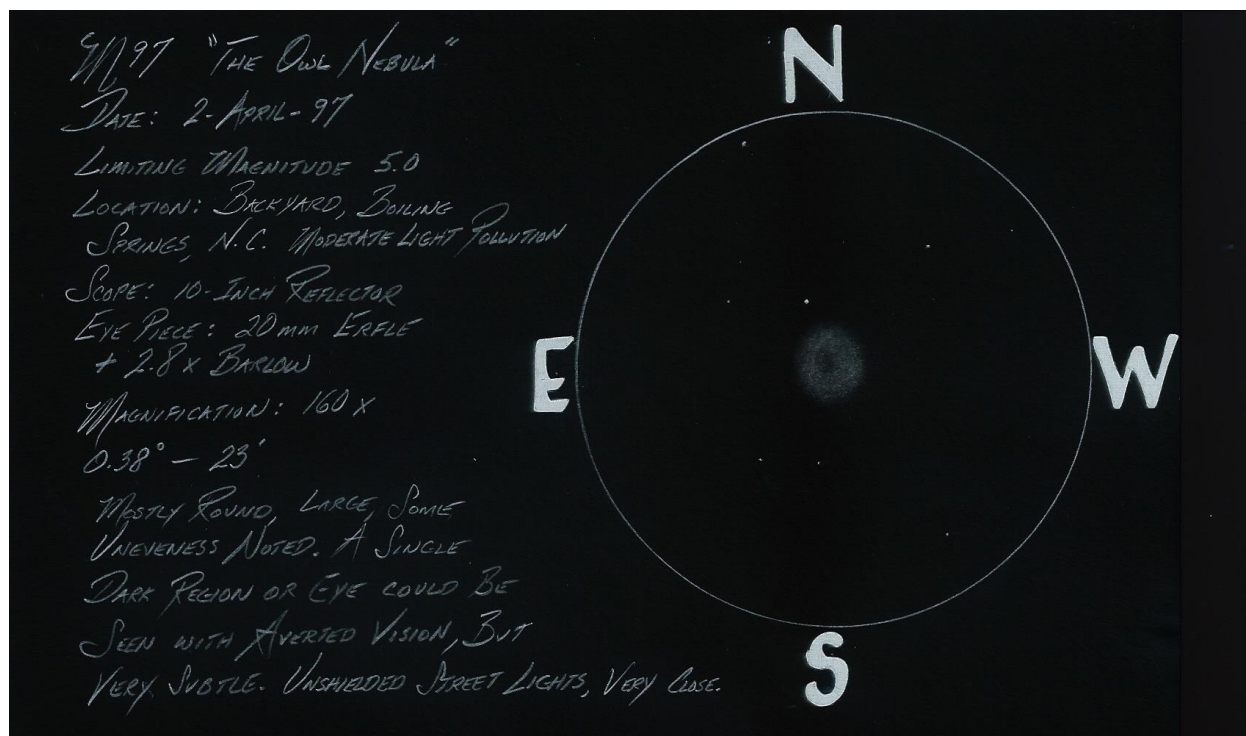 M97 "The Owl Nebula"
Date: 2-April-97
Limiting Magnitude 5.0
Location: Backyard, Boiling
Springs, N.C. Moderate Light Pollution
Scope: 10-Inch Reflector
Eye Piece: 20mm Erfle
+ 2.8x Barlow
Magnification: 160x
0.38° – 23'
Mostly Round, Large, Some
Uneveness Noted. A Single
Dark Region or Eye could Be
Seen with Averted Vision, But
Very Subtle. Unshielded Street Lights, Very Close.
N
E
W
S